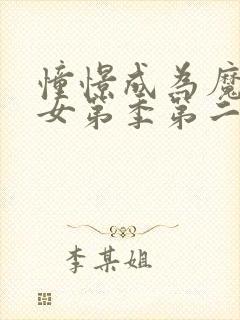 憧憬成為魔
女第季第二
李某姐